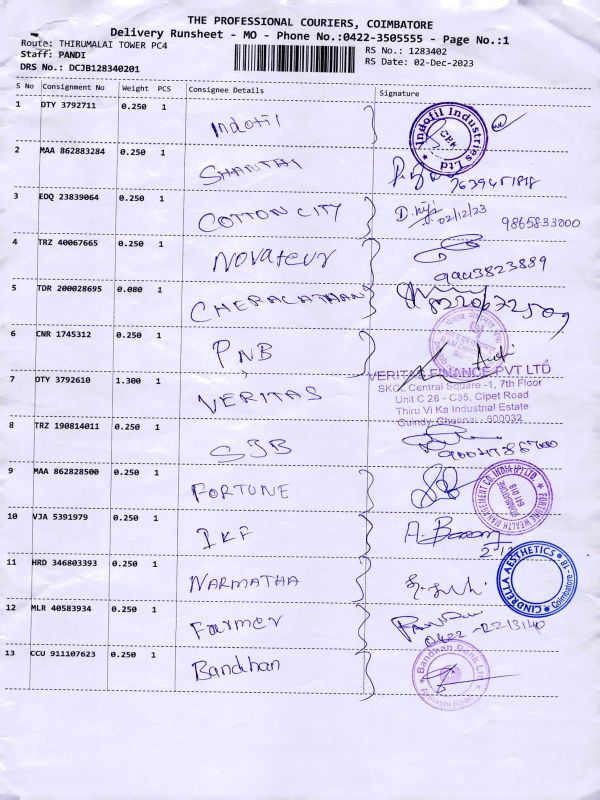 THE PROFESSIONAL COURIERS, COIMBATORE
Delivery Runsheet - MO - Phone No.:0422-3505555 - Page No.:1
Route: THIRUMALAI TOWER PC4 RS No.: 1283402
Staff: PANDI RS Date: 02-Dec-2023
DRS No.: DCJB128340201
S No Consignment No Weight PCS Consignee Details Signature
1 OTY 3792711 0.250 1 Indofil Indofil Industries Ltd
2 MAA 862883284 0.250 1 SHANTHI
3 EDQ 23839064 0.250 1 COTTON CITY 02/12/23 9865833000
4 TRZ 40067665 0.250 1 Novateur 9443823889
5 TDR 200028695 0.080 1
6 CNR 1745312 0.250 1 PNB
7 OTY 3792610 1.300 1 VERITAS
VERITAS FINANCE PVT LTD
SKCL Central Square -1, 7th Floor
Unit C 28 - C35, Cipet Road
Thiru Vi Ka Industrial Estate
Guindy, Chennai - 600032
8 TRZ 190814011 0.250 1 SJB
9 MAA 862828500 0.250 1 FORTUNE FORTUNE WEALTH MANAGEMENT CO. INDIA (P) LTD. COIMBATORE 641 018
10 VJA 5391979 0.250 1 IKF
11 HRD 346803393 0.250 1 NARMATHA CINDRELLA AESTHETICS Coimbatore - 18
12 MLR 40583934 0.250 1 Farmer
13 CCU 911107623 0.250 1 Bandhan Bandhan Bank Ltd